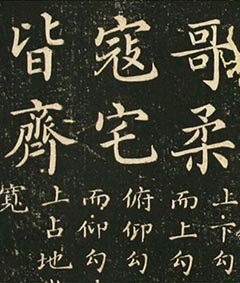 哥柔
上下勾
而上勾
寇宅
俯仰勾
而仰勾
皆齊
上占地
寬